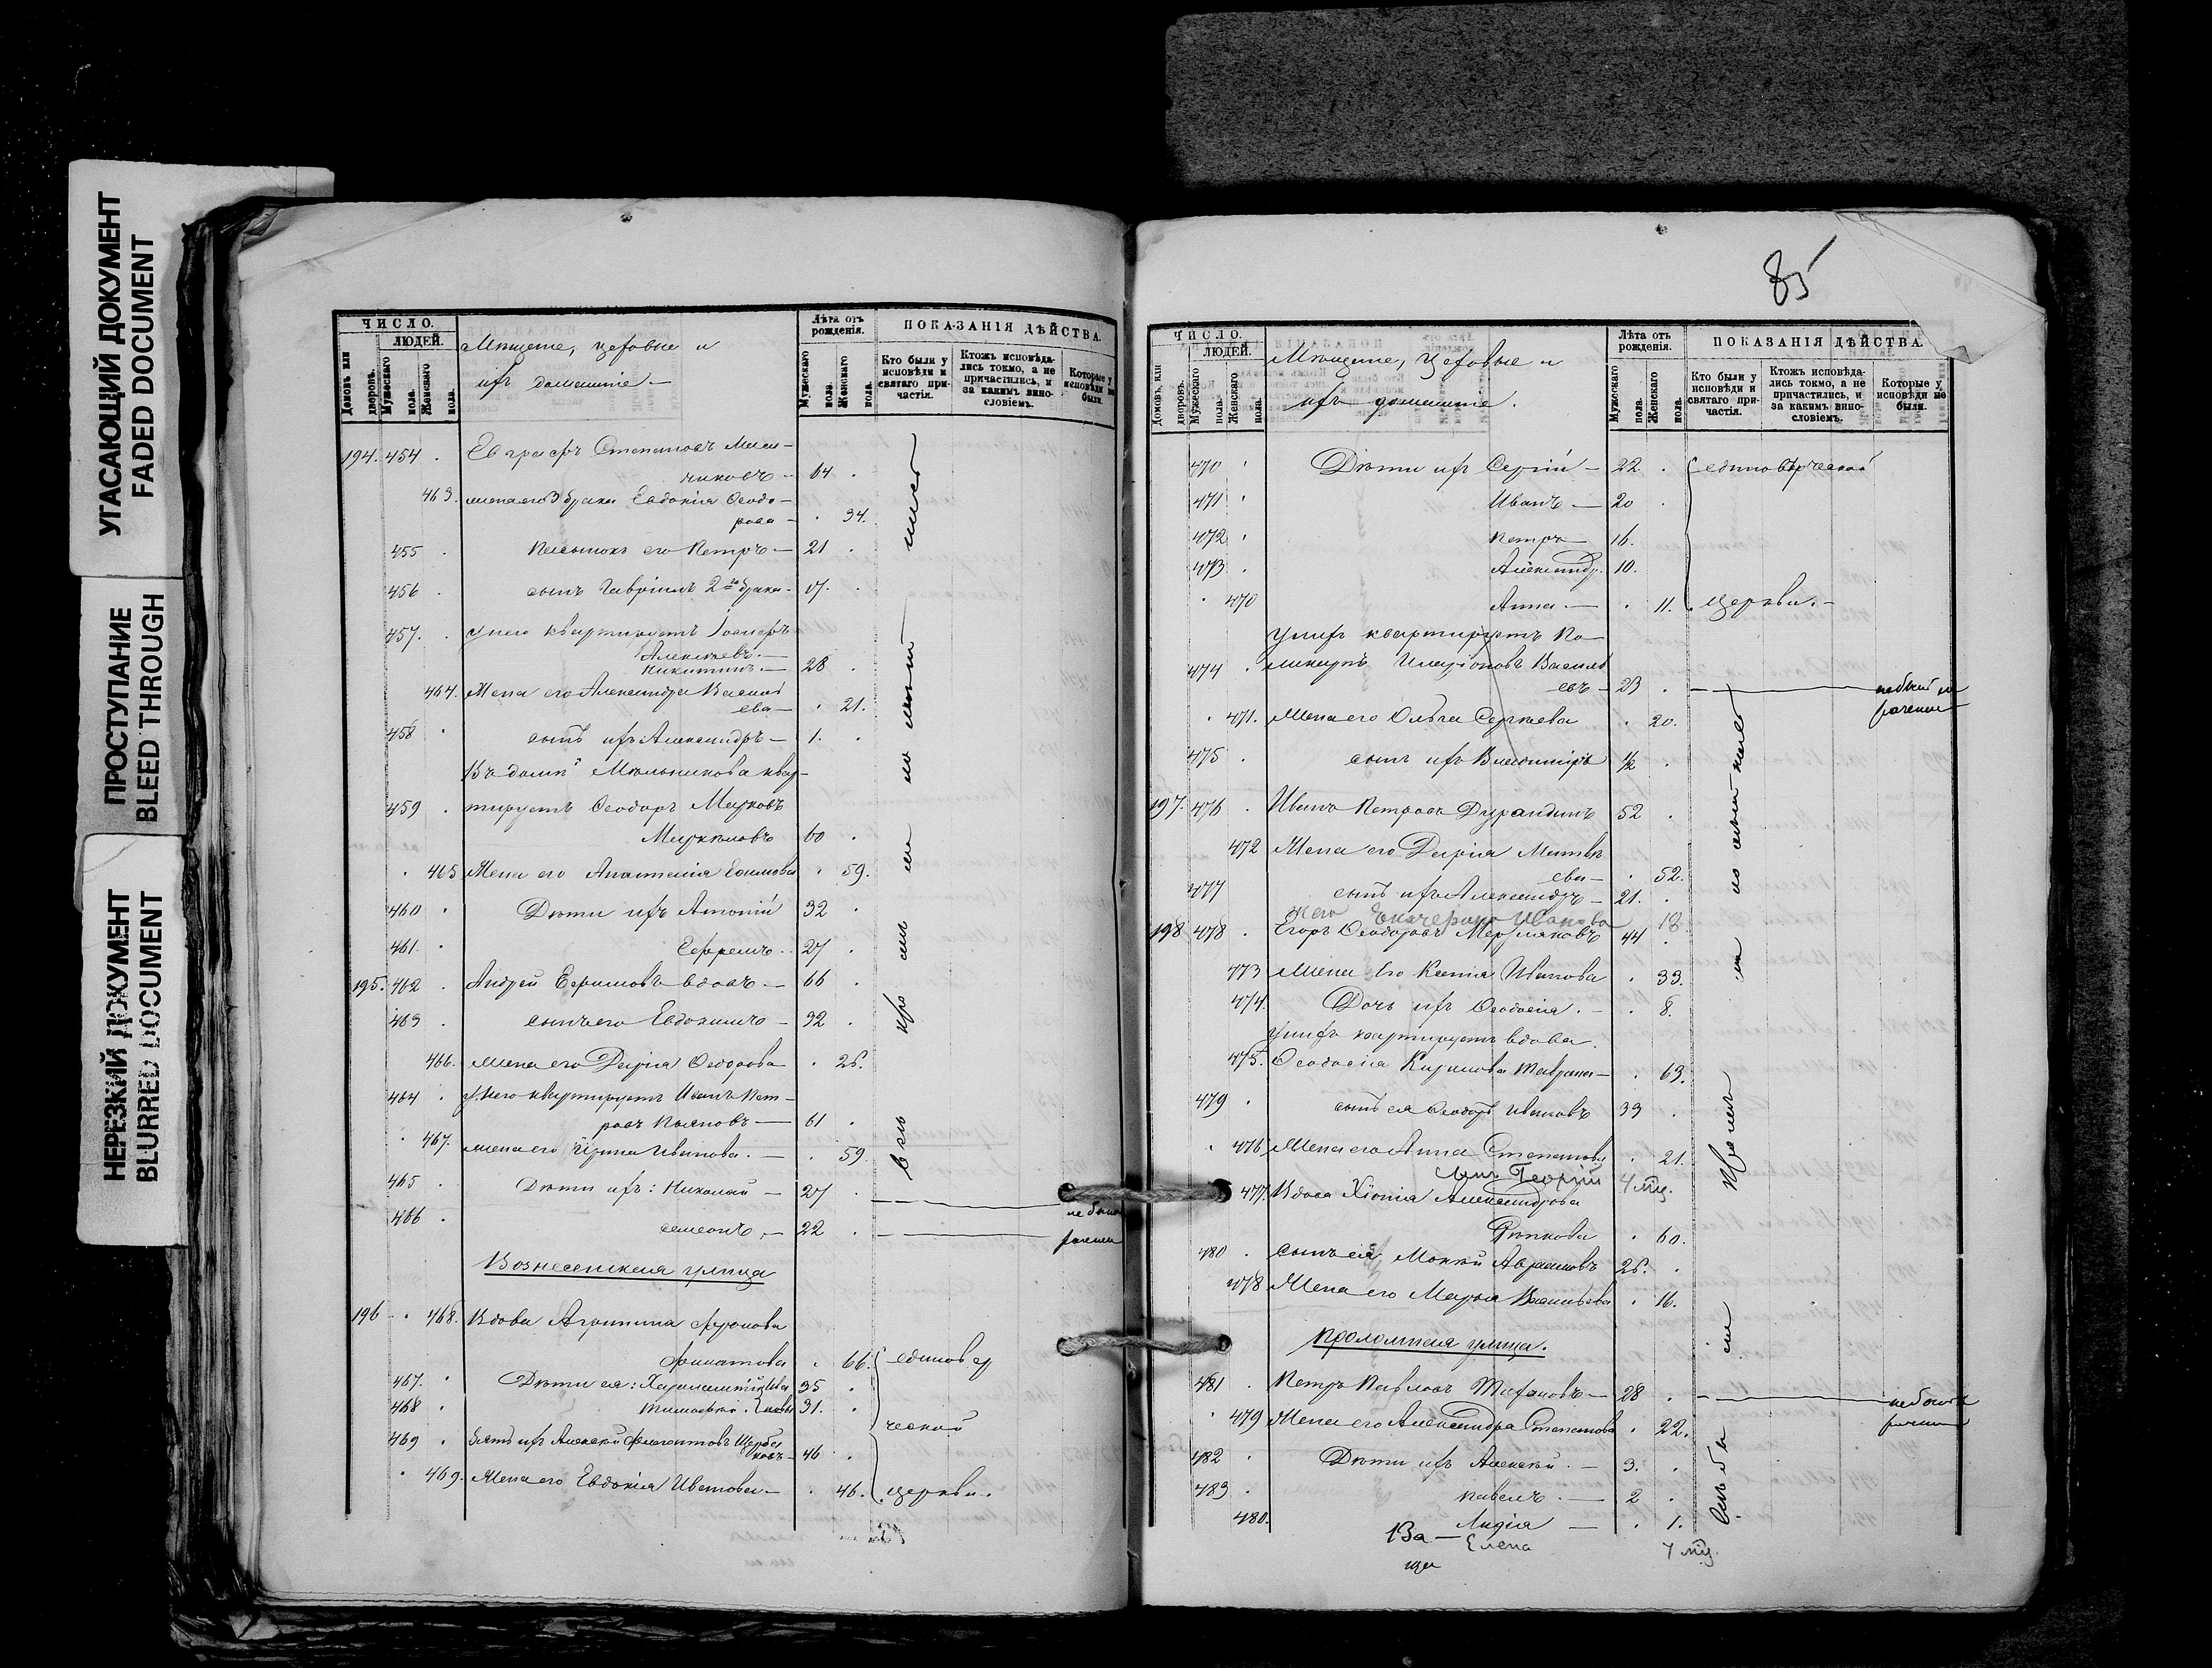 УГАСАЮЩИЙ ДОКУМЕНТ
FADED DOCUMENT
ПРОСТУПАНИЕ
BLEED THROUGH
НЕРЕЗКИЙ ДОКУМЕНТ
BLURRED DOCUMENT
ЧИСЛО.
ЛЮДЕЙ.
Домовъ или дворовъ.
Мужескаго пола.
Женскаго пола.
Мѣщане, цеховые и
ихъ домашніе —
Лѣта отъ рожденія.
Мужескаго пола.
Женскаго пола.
ПОКАЗАНІЯ ДѢЙСТВА.
Кто были у исповѣди и святаго причастія.
Ктожъ исповѣдались токмо, а не причастились, и за какимъ винословіемъ.
Которые у исповѣди не были.
194. 454 . Евграфъ Степановъ
64 .
463. жена его 3 брака Евдокія Ѳеодо-
рова — . 34.
455 . его Петръ — 21 .
456 . сынъ Гавріилъ 2го брака — 17. .
457. . у него квартируетъ Іосифъ
Алексѣевъ. —
Никитинъ. — 28 .
464. Жена его Александра Василь
ева — . 21.
458 . сынъ ихъ Александръ — 1. .
Въ домѣ Мельникова квар-
459 . тируетъ Ѳеодоръ Марковъ
Маркеловъ 60 .
. 465 Жена его Анастасія Ефимова . 59.
460 . Дѣти ихъ Антоній 32 .
461. . Ефремъ — 27 .
195. 462 . Андрей Ефимовъ вдовъ — 66 .
463 . сынъ его Евдокимъ — 32 .
466. Жена его Дарья Ѳедорова . 25.
464 . у него квартируетъ Иванъ Пет-
ровъ — 61 .
. 467. жена его Ирина Иванова. — . 59.
465 . Дѣти ихъ: Николай — 27 .
не были
466 . Семенъ. — 22 .
Вознесенская улица
196 — . 468. Вдова Агрипина
Филатова . 66. единовѣр
467. . Дѣти ея: Харлампій Ива 35 .
468 . Тимофей. новы 31. .
ческой
469 . Зять ихъ Алексѣй Щерба
ковъ — 46 .
. 469. Жена его Евдокія Иванова — . 46. церкви.
85
ЧИСЛО.
ЛЮДЕЙ.
Домовъ, или дворовъ.
Мужескаго пола.
Женскаго пола.
Мѣщане, Цеховые и
ихъ домашніе.
Лѣта отъ рожденія.
Мужескаго пола.
Женскаго пола.
ПОКАЗАНІЯ ДѢЙСТВА.
Кто были у исповѣди и святаго причастія.
Ктожъ исповѣдались токмо, а не причастились, и за какимъ винословіемъ.
Которые у исповѣди не были.
470 . Дѣти ихъ Сергій — 22 . единовѣрческой
471 . Иванъ — 20 .
472 . Петръ — 16.
473 . Александръ. 10.
. 470 Анна. — . 11. церкви. —
у нихъ квартируетъ По-
474 . ликарпъ Иларіоновъ Василь
евъ — 23 . —
. 471. Жена его Ольга Сергѣева . 20.
475 . сынъ ихъ Владиміръ ½ .
197. 476 . Иванъ Петровъ Дурандинъ 52 .
472 Жена его Дарія Матвѣ
ева — . 52.
477 сынъ ихъ Александръ — 21. .
жена Екатерина Иванова 18
198 478 . Егоръ Ѳеодоровъ Мерзляковъ 44 .
473 Жена его Ксенія Иванова . 33.
474. Дочь ихъ Ѳеодосія. — . 8.
у нихъ квартируетъ вдова.
475. Ѳеодосія — . 63.
479 . сынъ ея Ѳеодоръ Ивановъ 33 .
. 476. Жена его Анна Степанова . 21.
сынъ Георгій 4 мц.
477. Вдова Хіонія Александрова
Рѣпкова . 60.
480 . сынъ ея Мокей Авраамовъ 25. .
478 Жена его Марья Васильева . 16.
Проломная улица.
481 . Петръ Павловъ — 28 . — не были
. 479 Жена его Александра Степанова . 22.
482 . Дѣти ихъ Алексѣй. — 3. .
483 . Павелъ. — 2 .
480. Лидія — . 1.
Елена 7 мц.